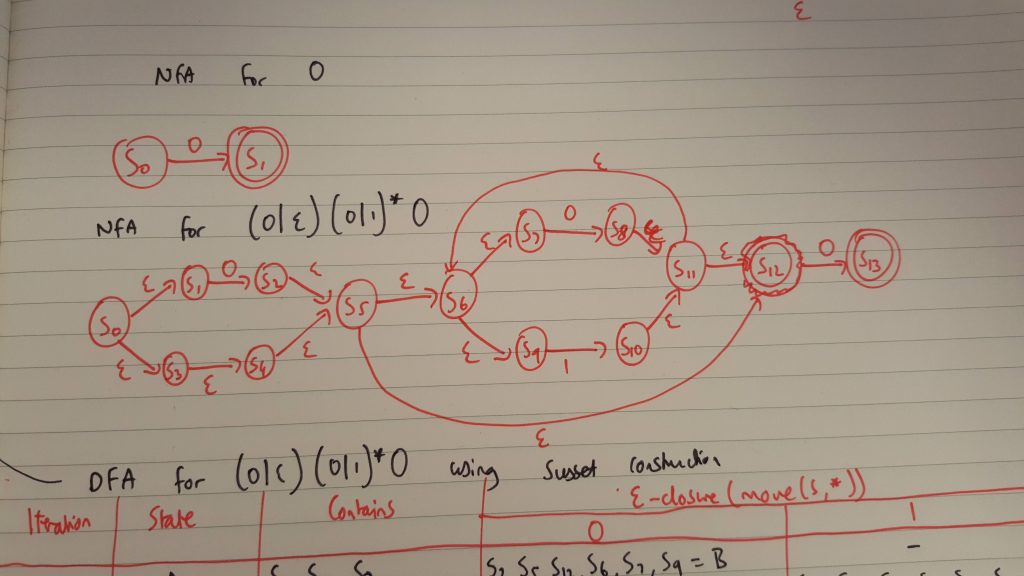 ε
NFA for 0
S0 0 S1
NFA for (0|ε)(0|1)*0
ε
S7 0 S8
ε ε
S1 0 S2 ε
ε S11 ε S12 0 S13
S0 S5 ε S6
ε S3 ε S4 ε
ε S9 1 S10 ε
ε
DFA for (0|ε)(0|1)*0 using Subset construction
Iteration State Contains ε-closure(move(S,*))
0 1
S2 S5 S12 S6, S7, S9 = B -